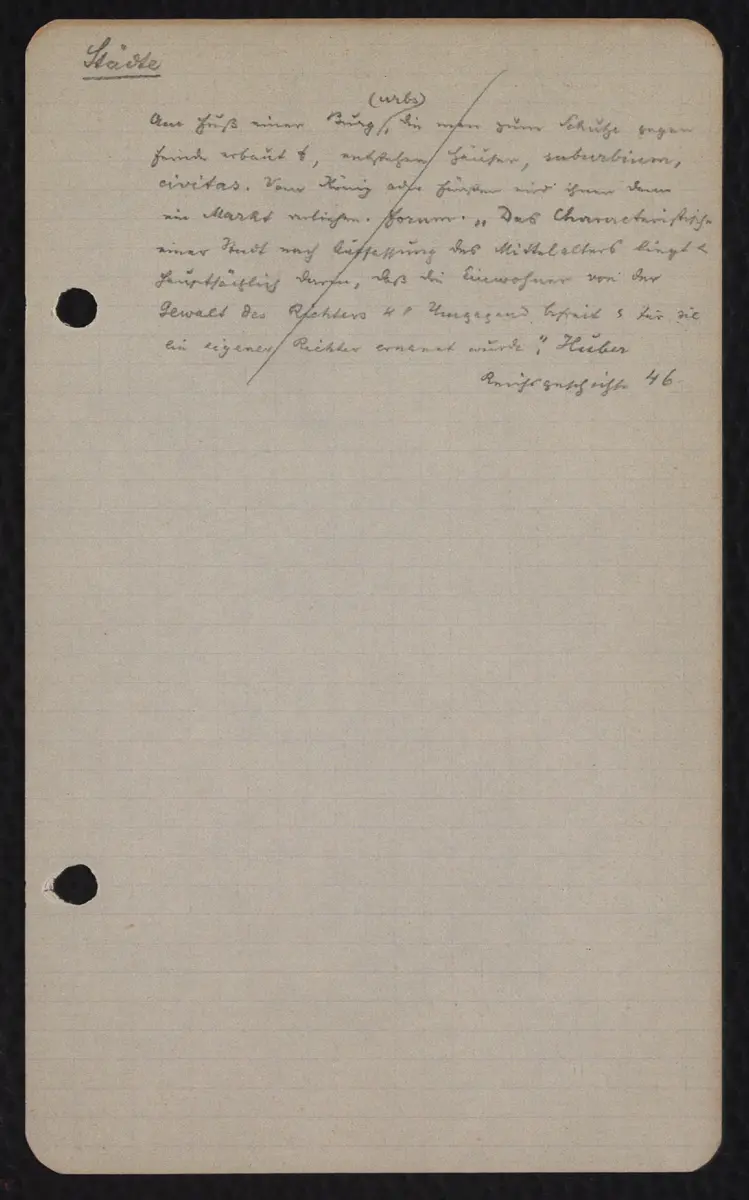 Städte
(urbs)
Am Fuß einer Burg, die man zum Schutze gegen
Feinde erbaut, entstehen Häuser, suburbium,
civitas. Vom König oder Fürsten wird ihnen dann
ein Markt verliehen. forum. „Das Characteristische
einer Stadt nach Auffassung des Mittelalters liegt
hauptsächlich darin, daß die Einwohner von der
Gewalt des Richters Umgegend befreit für sie
ein eigener Richter ernannt wurde", Huber
Reichsgeschichte 46.